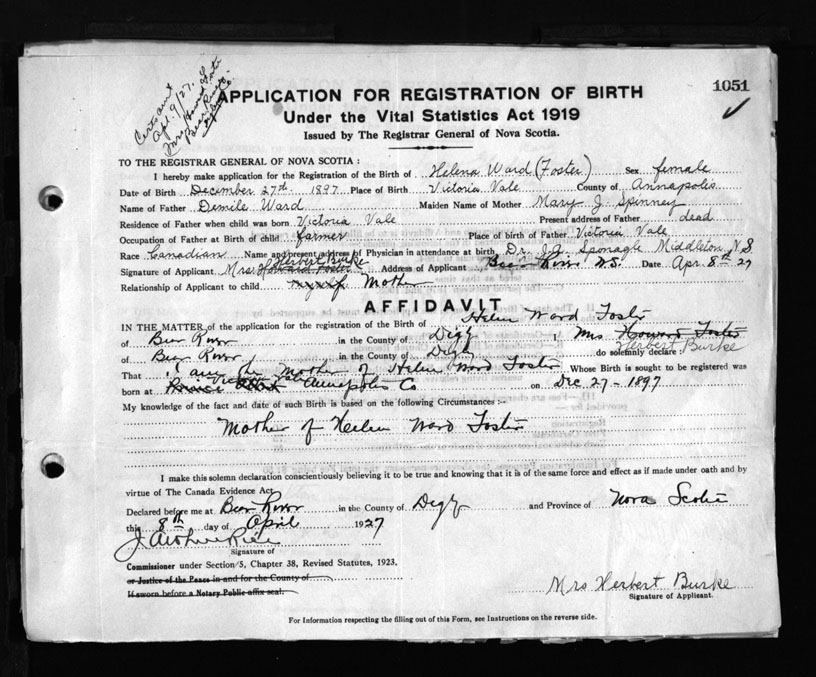 Cert sent
Apl. 9/27. to
Mrs Howard Foster
Bear River
1051
APPLICATION FOR REGISTRATION OF BIRTH
Under the Vital Statistics Act 1919
Issued by The Registrar General of Nova Scotia.
TO THE REGISTRAR GENERAL OF NOVA SCOTIA :
I hereby make application for the Registration of the Birth of Helena Ward (Foster) Sex female
Date of Birth December 27th 1897 Place of Birth Victoria Vale County of Annapolis
Name of Father Demile Ward Maiden Name of Mother Mary J. Spinney
Residence of Father when child was born Victoria Vale Present address of Father dead
Occupation of Father at Birth of child farmer Place of birth of Father Victoria Vale
Race Canadian Name and present address of Physician in attendance at birth Dr. J.A. Sponagle Middleton, N.S
Herbert Burke
Signature of Applicant Mrs Howard Foster Address of Applicant Bear River N.S. Date Apr. 8th 27
Relationship of Applicant to child myself Mother
AFFIDAVIT
IN THE MATTER of the application for the registration of the Birth of Helen Ward Foster
of Bear River in the County of Digby I, Mrs Howard Foster
Herbert Burke
of Bear River in the County of Digby do solemnly declare :
That I am the mother of Helen Ward Foster Whose Birth is sought to be registered was
born at Annapolis Co on Dec 27 - 1897
My knowledge of the fact and date of such Birth is based on the following Circumstances :-
Mother of Helen Ward Foster
I make this solemn declaration conscientiously believing it to be true and knowing that it is of the same force and effect as if made under oath and by
virtue of The Canada Evidence Act.
Declared before me at Bear River in the County of Digby and Province of Nova Scotia
this 8th day of April 1927
J. Arthur Rice
Signature of
Commissioner under Section 5, Chapter 38, Revised Statutes, 1923.
or Justice of the Peace in and for the County of
If sworn before a Notary Public affix seal.
Mrs Herbert Burke
Signature of Applicant.
For Information respecting the filling out of this Form, see Instructions on the reverse side.